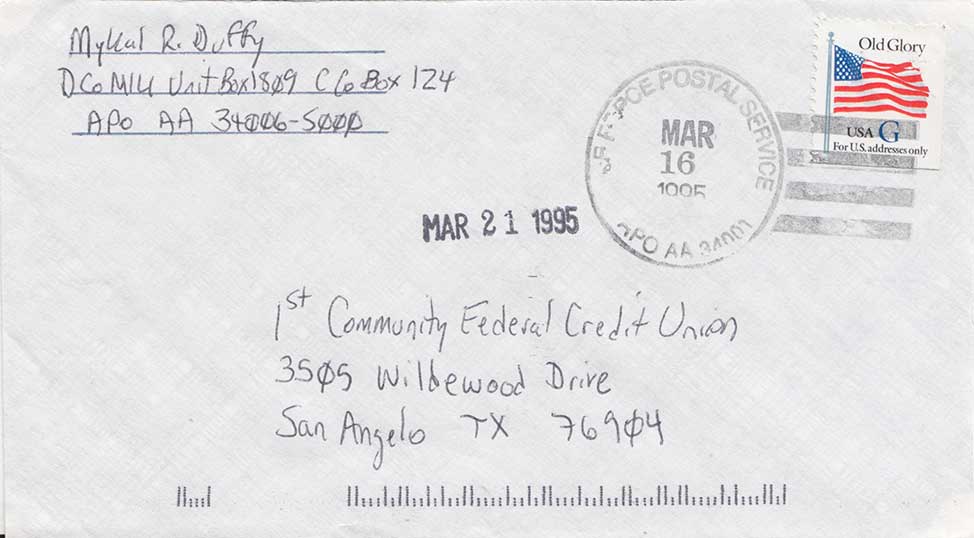 Mykal R. Duffy
D Co Unit Box 1809 C Co Box 124
APO AA 34006-5000
Old Glory
USA G
For U.S. addresses only
FORCE POSTAL SERVICE
MAR
16
1995
APO AA
MAR 21 1995
1st Community Federal Credit Union
3505 Wildewood Drive
San Angelo TX 76904